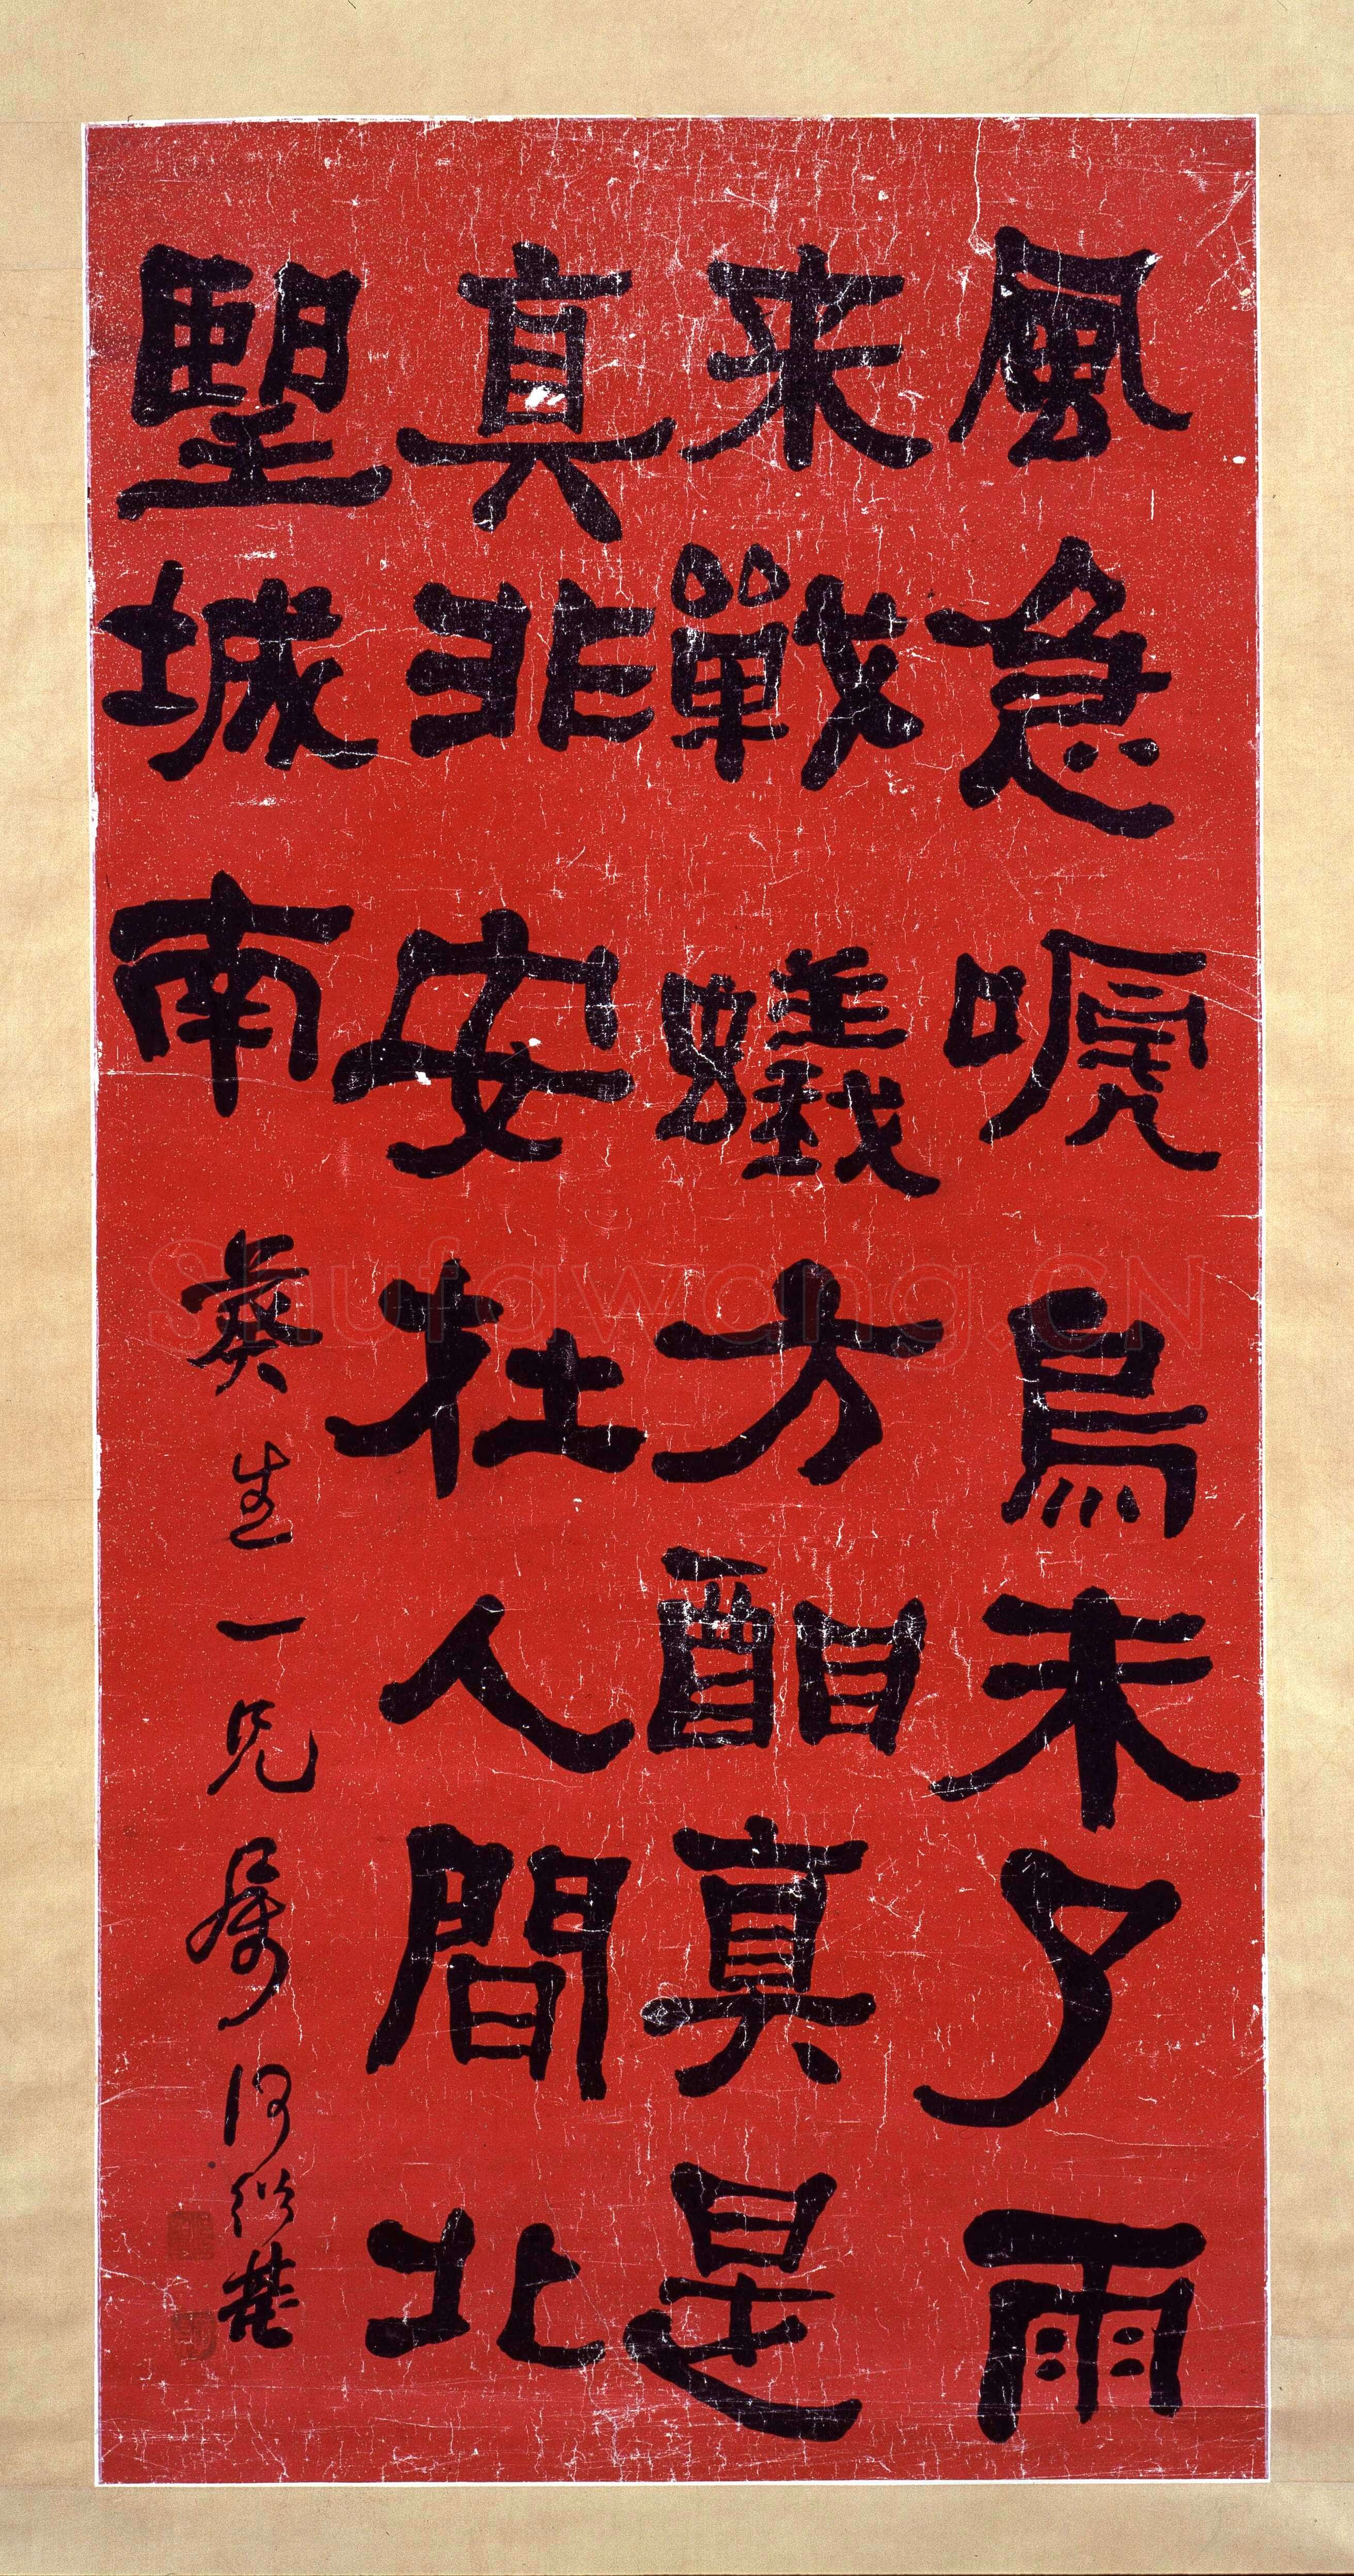 風急嗁烏未了雨
来戰蟻方酣真是
真非安在人間北
朢城南彝生一兄属何紹基
Shufawang.CN